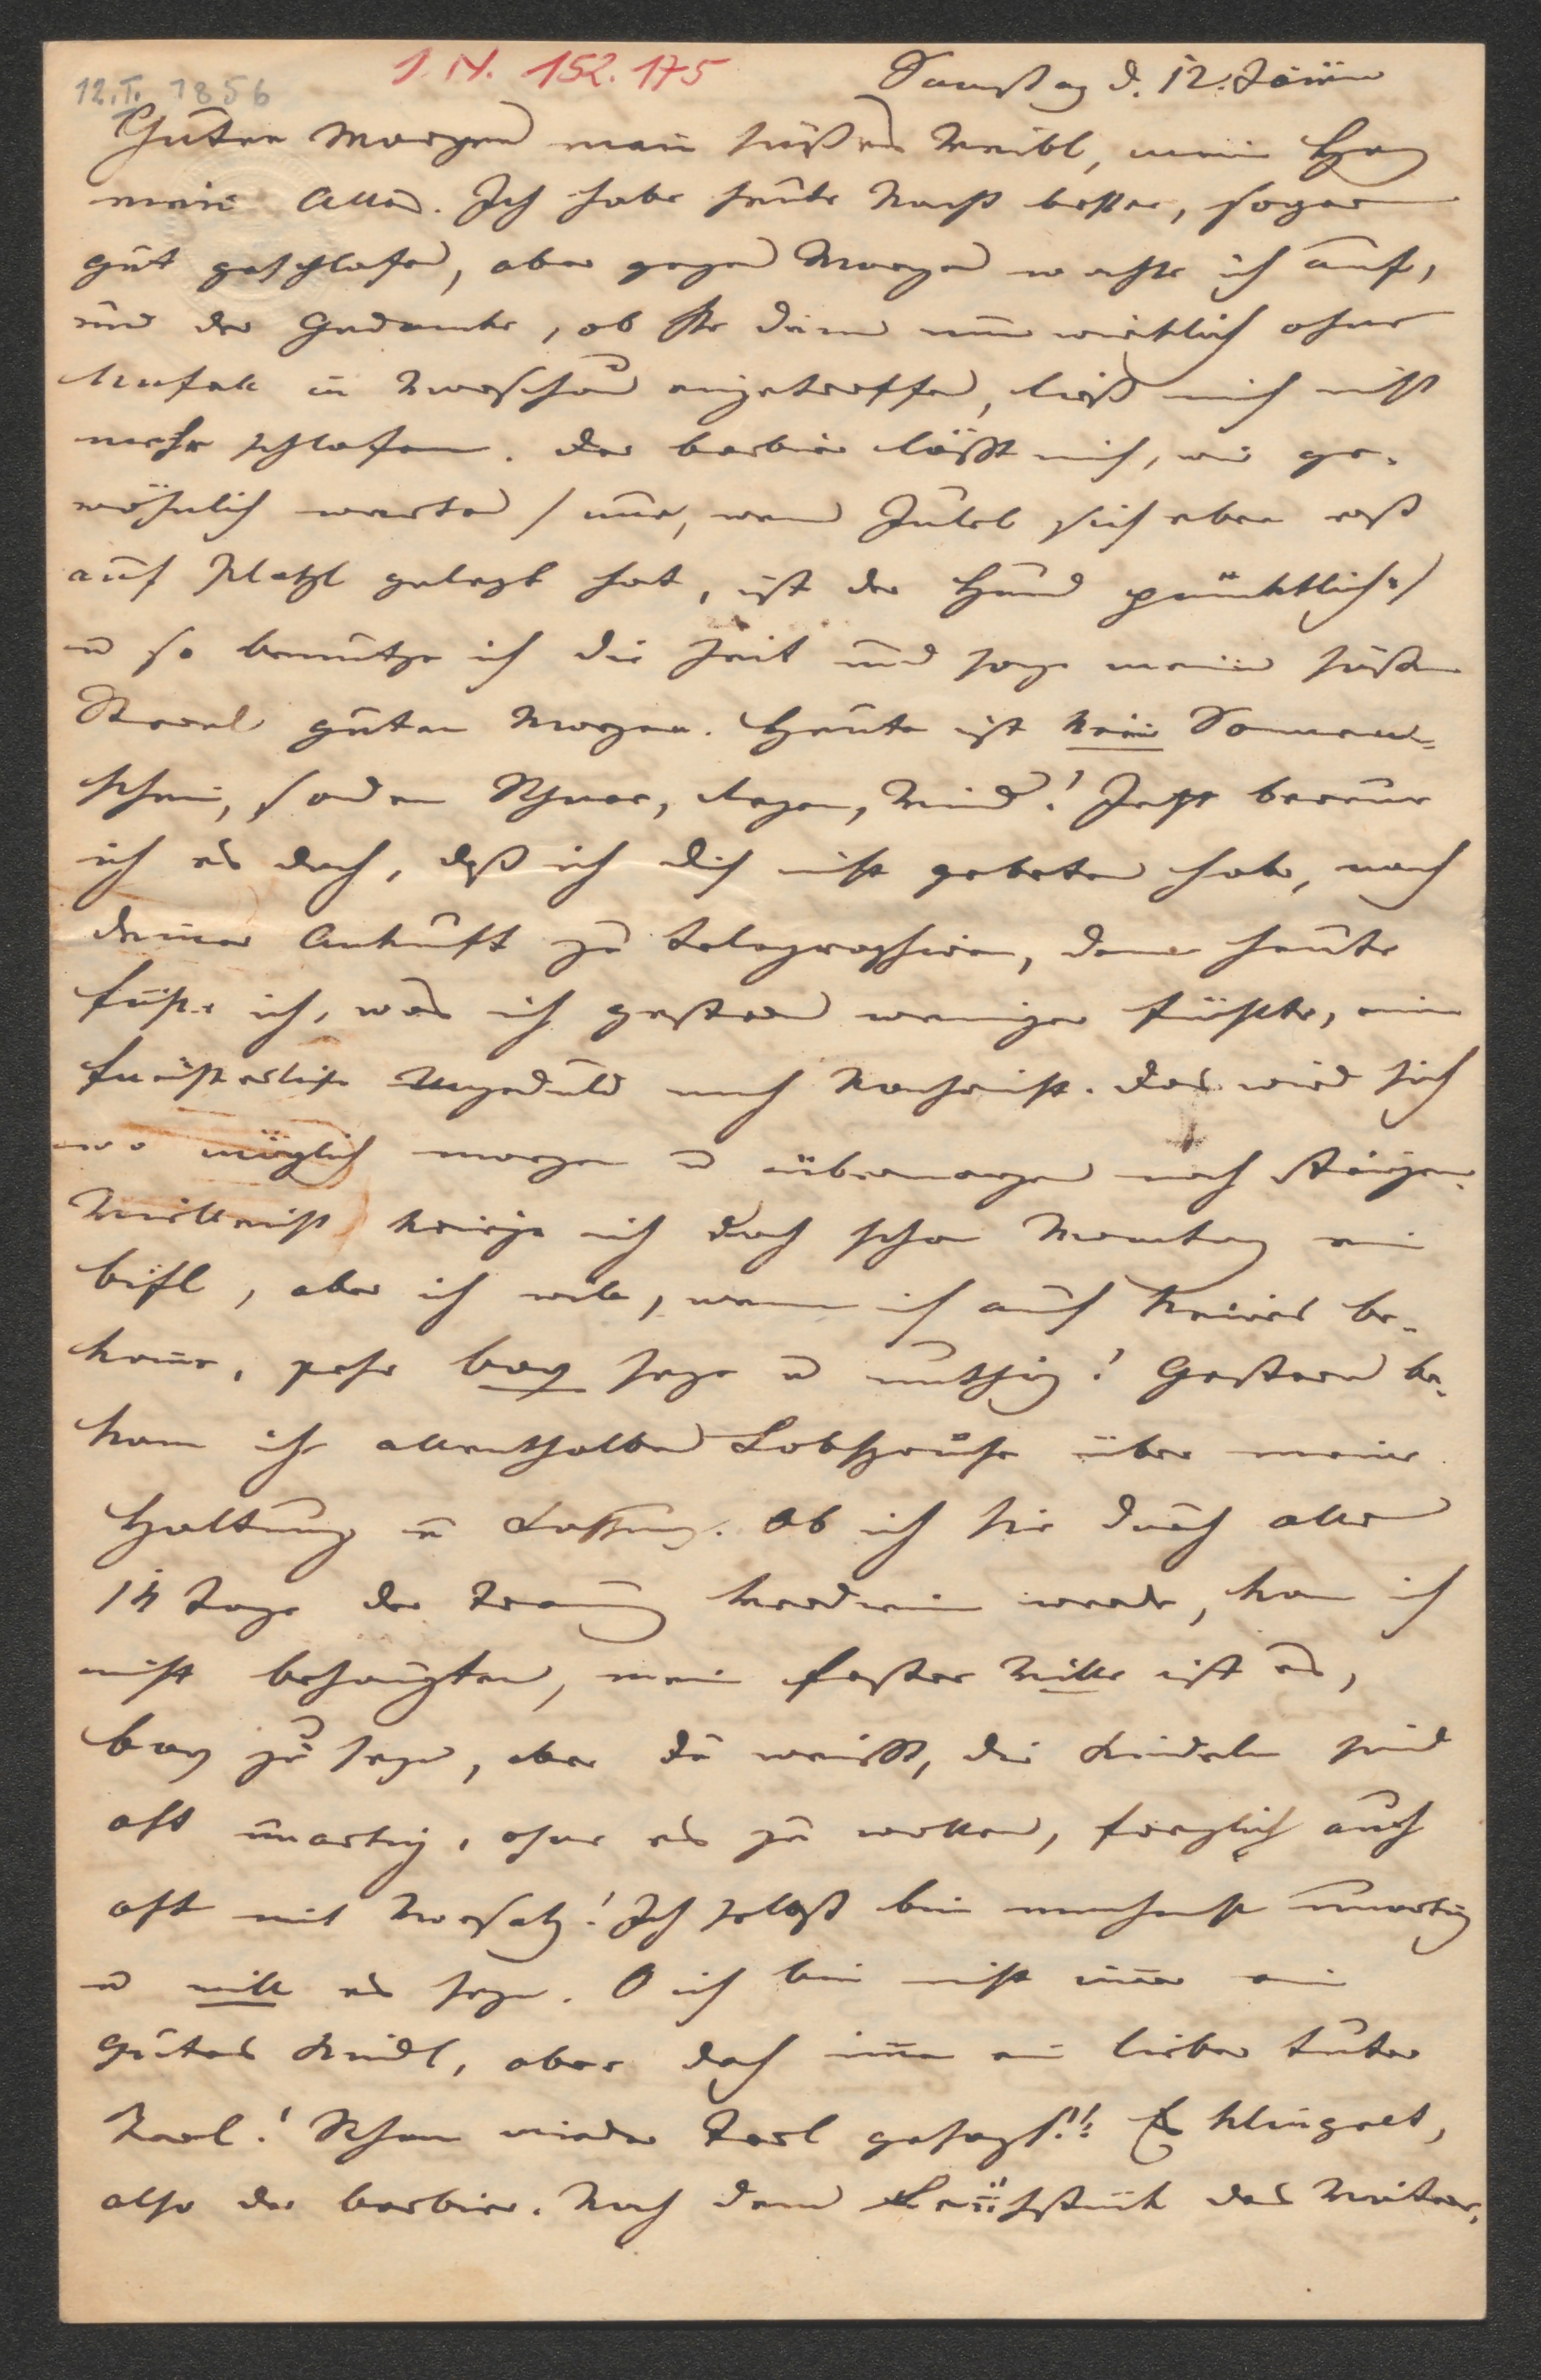 12.I. 1856
I.N. 152.175
Samstag d. 12. Jänner
Guten Morgen mein süßes Weibl, mein Herz
mein Alles. Ich habe heute Nacht besser, sogar
gut geschlafen, aber gegen Morgen wachte ich auf,
und der Gedanke, ob Ihr denn nun wirklich ohne
Unfall in Warschau eingetroffen, ließ mich nicht
mehr schlafen. Der Barbier läßt mich, wie ge-
wöhnlich warten / nur, wenn Juleb sich eben erst
aufs Platzl gelegt hat, ist der Hund pünktlich /
u so benutze ich die Zeit und sage meinen süßen
guten Morgen. Heute ist kein Sonnen=
schein, sondern Schnee, Regen, Wind! Jetzt bereue
ich es doch, daß ich dich nicht gebeten habe, nach
deiner Ankunft zu telegraphiren, denn heute
fühle ich, was ich gestern weniger fühlte, eine
fürchterliche Ungeduld nach Nachricht. Das wird sich
wo möglich morgen u übermorgen noch steigern.
Vielleicht kriege ich doch schon Montag ein
bißl, aber ich will, wenn ich auch keines be-
komme, sehr brav seyn u muthig! Gestern be-
kam ich allenthalben Lobsprüche über meine
Haltung u Fassung. Ob ich sie durch alle
14 Tage der Trennung werde, kann ich
nicht behaupten, mein fester Wille ist es,
brav zu seyn, aber du weißt, die Kindeln sind
oft unartig, ohne es zu wollen, freylich auch
oft mit Vorsatz! Ich selbst bin manchmal unartig
u will es seyn. O ich bin nicht immer ein
gutes Kindl, aber doch immer ein lieber guter
Kerl! Schon wieder Kerl gesagt!! Es klingelt,
also der Barbier. Nach dem Frühstück das Weitere.